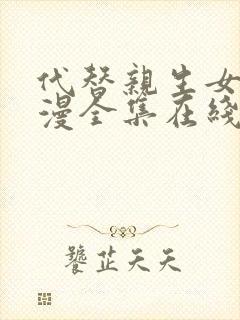 代替親生女
漫全集在綫
饕芷天天